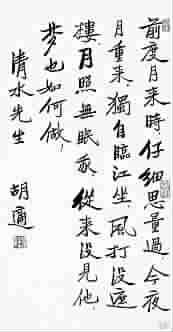 前度月来時，仔细思量過，今夜
月重来，獨自臨江坐。風打没遮
樓，月照無眠我，從来没見他，
梦也如何做！
清水先生
胡適